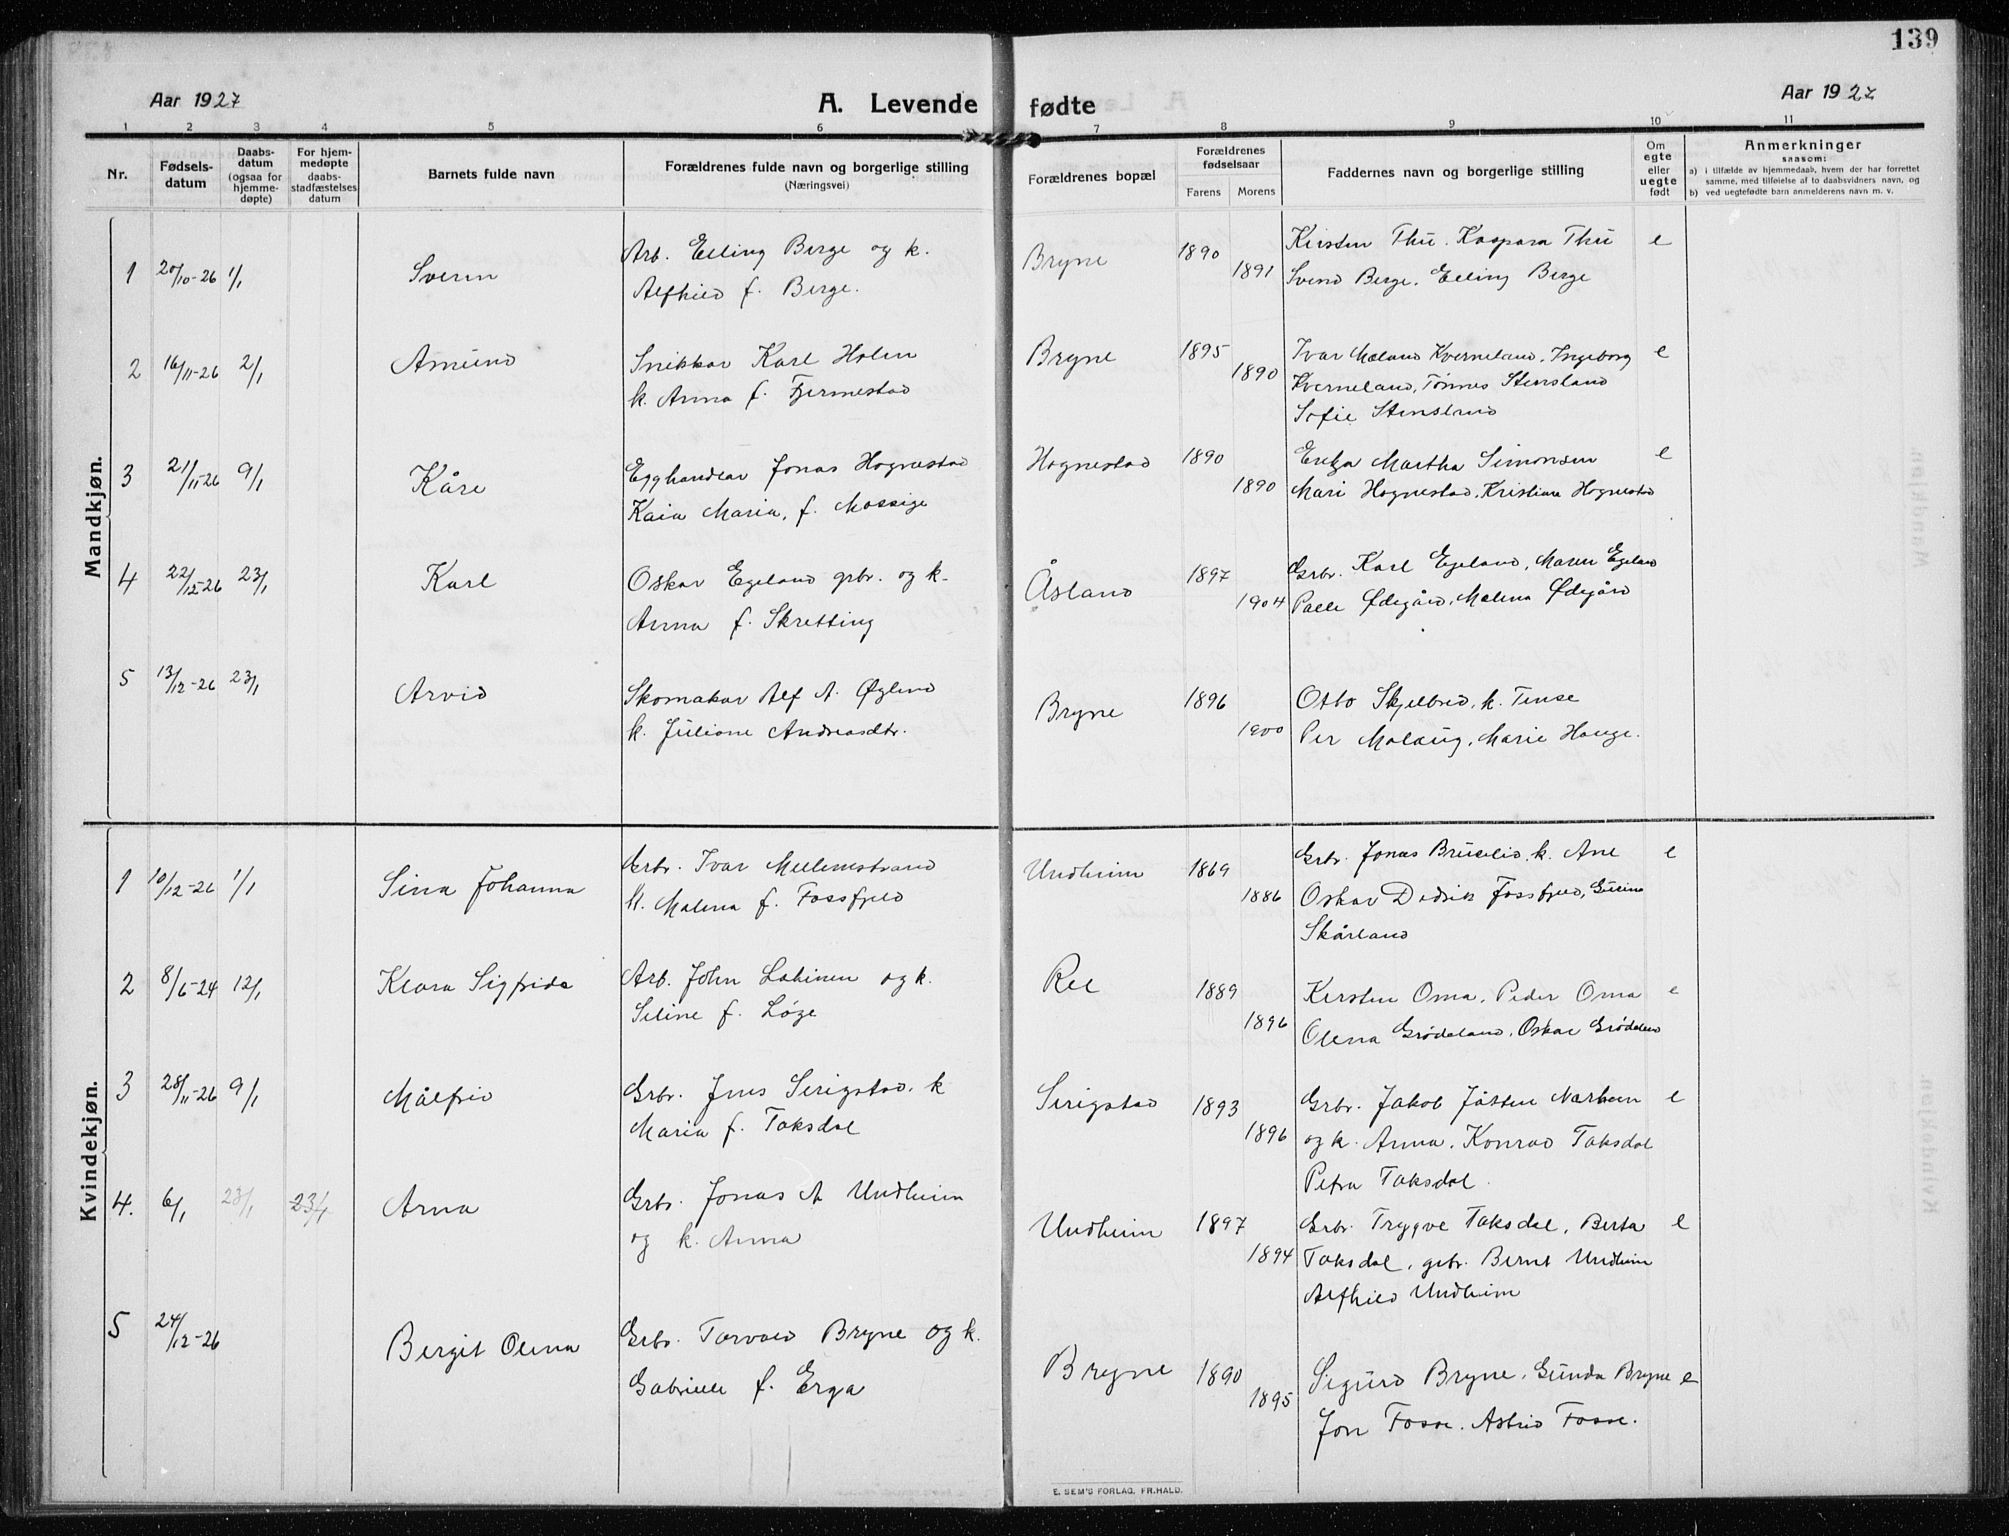 139
Aar 1927
A. Levende fødte
Aar 1927
1 2 3 4 5 6 7 8 9 10 11
Nr.
Fødsels-
datum
Daabs-
datum
(ogsaa for
hjemme-
døpte)
For hjem-
medøpte
daabs-
stadfæstelses
datum
Barnets fulde navn
Forældrenes fulde navn og borgerlige stilling
(Næringsvei)
Forældrenes bopæl
Forældrenes
fødselsaar
Farens Morens
Faddernes navn og borgerlige stilling
Om
egte
eller
uegte
født
Anmerkninger
saasom:
a) i tilfælde av hjemmedaab, hvem der har forrettet
samme, med tilføielse af to daabsvidners navn, og
b) ved uegtefødte barn anmelderens navn m. v.
Mandkjøn.
1 20/10-26 1/1 Sverin Arb. Elling Berge og k. Bryne 1890 Kirsten Thu. Kaspara Thu e
Alfhild f. Berge. 1891 Svend Berge. Elling Berge
2 16/11-26 2/1 Amund Snikkar Karl Holen Bryne 1895 Ivar Mæland Kverneland, Ingeborg e
k. Anna f. Fjermestad 1890 Kverneland, Tønnes Stensland
Sofie
3 21/11-26 9/1 Kåre Egghandlar Jonas Hognestad Hognestad 1890 Martha Simonsen e
Kaia Maria, f. Mossige 1890 Mari Hognestad, Kristiane Hognestad
4 22/12-26 23/1 Karl Oskar Egeland grbr. og k. Åsland 1897 Grbr. Karl Egeland, Maren Egeland
Anna f. Skretting 1904 Palle Ødegård, Malena Ødegård
5 13/12-26 23/1 Arvid Skomakar Alf A. Øglend Bryne 1896 Otto Skjelbred, k. Tense
k. Juliane Andreasdtr. 1900 Per Malaug, Marie Hauge.
Kvindekjøn.
1 10/12-26 1/1 Sina Johanna Grbr. Ivar Mellemstrand Undheim 1869 Grbr. Jonas Bruselid, k. Ane e
k. Malena f. Fossfjeld 1886 Oskar Dedrik Fossfjeld,
Skårland
2 8/6-24 12/1 Klara Sigfrida Arb. John Lahinen og k. Ree 1889 Kirsten Oma, Peder Oma e
Seline f. Løge 1896 Olena Grødeland, Oskar Grødeland
3 28/11-26 9/1 Målfrid Grbr. Jens Serigstad, k Serigstad 1893 Grbr. Jakob Jåtten Nærheim e
Maria f. Taksdal 1896 og k. Anna, Konrad Taksdal
Petra Taksdal.
4. 6/1 23/1 23/1 Arna Grbr. Jonas A Undheim Undheim 1897 Grbr. Trygve Taksdal, Berta e
og k. Anna 1894 Taksdal, grbr. Bernt Undheim
Alfhild Undheim
5 24/12-26 Birgit Olena Grbr. Torvald Bryne og k. Bryne 1890 Sigurd Bryne, Gunda Bryne e
Gabrielle f. Erga 1895 Jon Fosse. Astrid Fosse.
E. SEM'S FORLAG, FR.HALD.